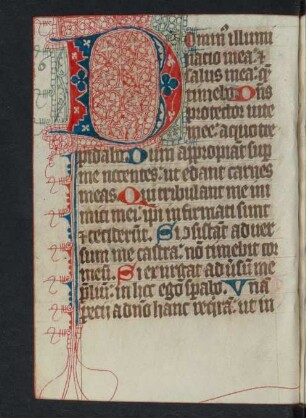 Dominus illumi
nacio mea: et
salus mea: quem
timebo. Dominus
protector vite
mee: a quo tre
pidabo. Dum appropiant super
me nocentes: ut edant carnes
meas. Qui tribulant me ini
mici mei: ipsi infirmati sunt
et ceciderunt. Si consistant adver
sum me castra: non timebit cor
meum. Si exurgat adversum me
prelium: in hoc ego sperabo. Una
pecii a domino hanc requiram: ut in